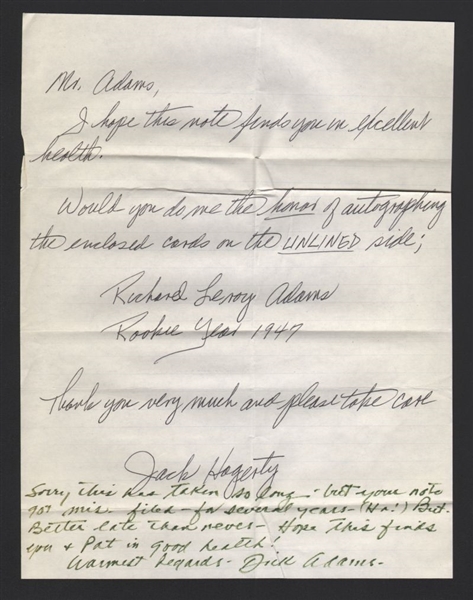 Mr. Adams,
I hope this note finds you in excellent
health.
Would you do me the honor of autographing
the enclosed cards on the UNLINED side;
Richard Leroy Adams
Rookie Year 1947
Thank you very much and please take care
Jack Hagerty
Sorry this has taken so long - but your note
got mis. filed - for several years - (Ha!) But
Better late than never - Hope this finds
you & Pat in good health!
Warmest Regards - Dick Adams -